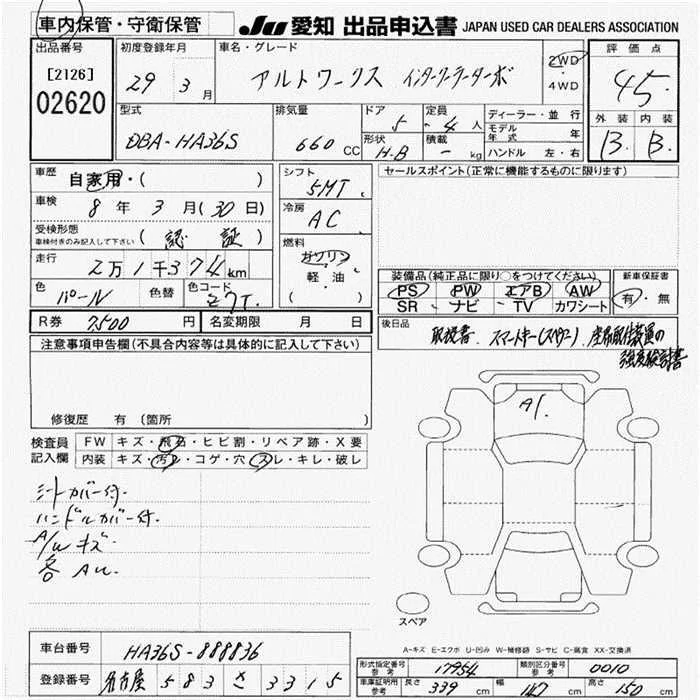 車内保管・守衛保管
JU 愛知 出品申込書 JAPAN USED CAR DEALERS ASSOCIATION
出品番号
[2126]
02620
初度登録年月
29 3月
車名・グレード
アルトワークス インタークーラーターボ
2WD
・
4WD
評価点
4.5
外装 内装
B B
型式
DBA-HA36S
排気量
660 CC
ドア
5
定員
4 人
形状
H.B
積載
- kg
ディーラー・並行
モデル年式 年
ハンドル 左・右
車歴
自家用・( )
車検
8年 3月(30日)
受検形態
車検付きのみ記入して下さい
(認 証)
走行
2万1千374km
色
パール
色替
色コード
Z7T.
シフト
5MT
冷房
AC
燃料
ガソリン
軽・油
( )
セールスポイント(正常に機能するものに限ります)
装備品(純正品に限り○をつけてください)
PS PW エアB AW
SR ナビ TV カワシート
新車保証書
有・無
R券 7500 円
名変期限 月 日
後日品
取説書. スマートキー(スペア).
注意事項申告欄(不具合内容等は具体的に記入して下さい)
修復歴 有(箇所
検査員
記入欄
FW キズ・飛石・ヒビ割・リペア跡・X要
内装 キズ・汚レ・コゲ・穴・スレ・キレ・破レ
シートカバー付.
ハンドルカバー付.
A/W キズ
各 AU.
A1.
スペア
A-キズ E-エクボ U-凹み W-補修跡 S-サビ C-腐食 XX-交換済
車台番号
HA36S-888836
登録番号
名古屋 583 さ 3315
形式指定番号
参考
17954
類別区分番号
参考
0010
車庫証明用
参考
長さ 339 cm 幅 147 cm 高さ 150 cm